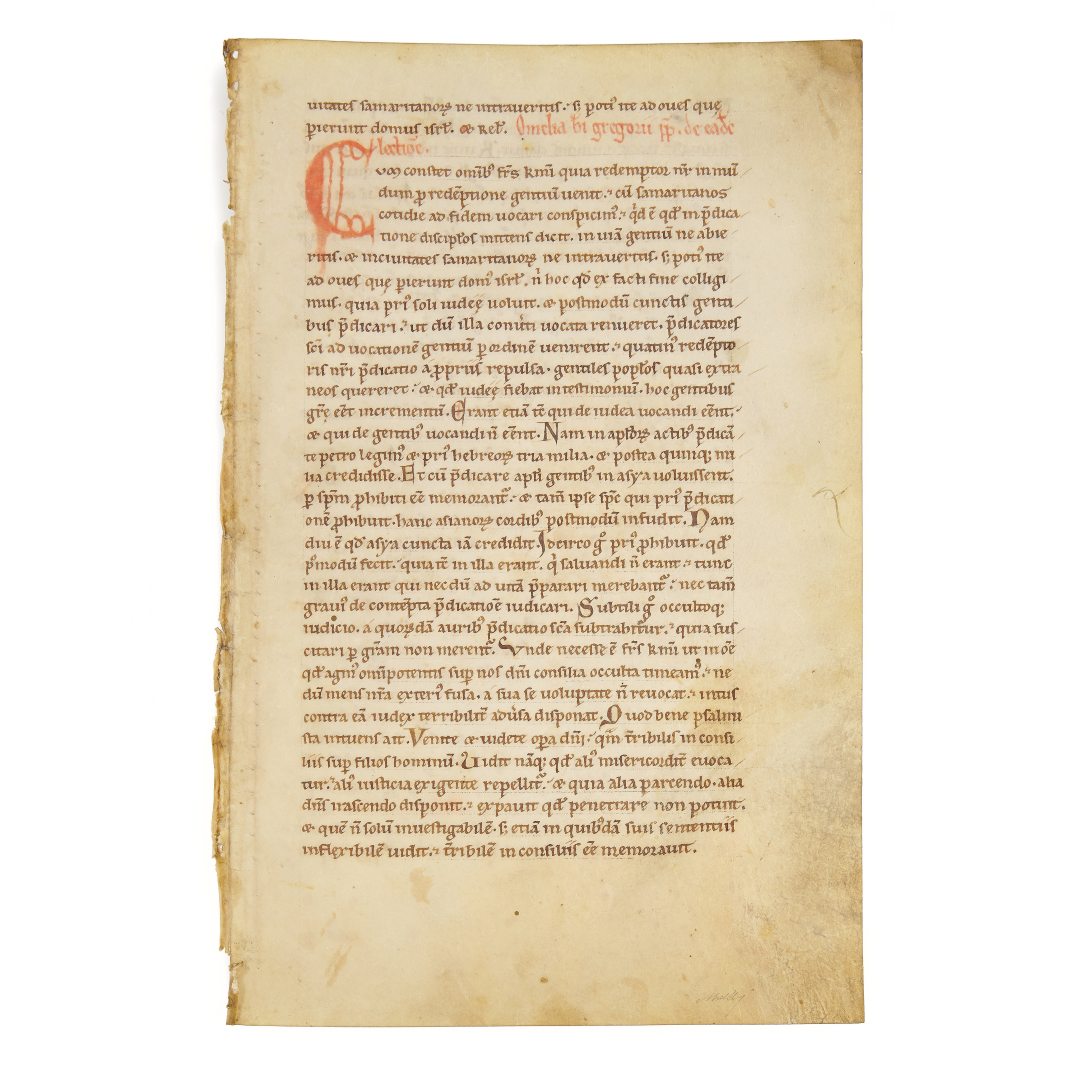 uitates samaritanoꝝ ne intraveritis. s; poti᷒ ite ad oves quę
ꝑierunt domus isrł. & Rel̃. Omelia b̃i gregorii pp̃. de eadē
lectiōe.
Cum constet omnib᷒ fr̃s k̃mi quia redemptor nr̃ in mū
dum ꝓ redēptione gentiū venit. cū samaritanos
cotidie ad fidem vocari conspicim᷒. qd̃ ē qd̃ in p̃dica
tione discipłos mittens dicit. in viā gentiū ne abie
ritis. & in civitates samaritanoꝝ ne intraveritis. s; poti᷒ ite
ad oves quę ꝑierunt dom᷒ isrł. ñ hoc qd̃ ex facti fine colligi
mus. quia pri᷒ soli iudeę voluit. & postmodū cunctis genti
bus p̃dicari. ut dū illa convti vocata renueret. p̃dicatores
sc̃i ad vocationē gentiū ꝑ ordinē venirent. quatin᷒ redēpto
ris nr̃i p̃dicatio a ꝓpriis repulsa. gentiles popłos quasi extra
neos quereret. & qd̃ iudeę fiebat in testimoniū. hoc gentibus
gr̃ę eēt incrementū. Erant etiā tē qui de iudea vocandi eēnt.
& qui de gentib᷒ vocandi ñ eēnt. Nam in apłoꝝ actib᷒ p̃dicā
te petro legim᷒ & pri᷒ hebreoꝝ tria milia. & postea quinq; mi
lia credidisse. Et cū p̃dicare apłi gentib᷒ in asya voluissent.
ꝑ sp̃m ꝓhibiti eē memorant᷑. & tam̃ ipse sp̃c qui pri᷒ p̃dicati
onē ꝓhibuit. hanc asianoꝝ cordib᷒ postmodū infudit. Nam
diu ē qd̃ asya cuncta iā credidit. Idcirco g̊ pri᷒ ꝓhibuit. qd̃
p᷒modū fecit. quia tē in illa erant. q̇ salvandi ñ erant. tunc
in illa erant qui nec dū ad vitā p̃parari merebant᷑. nec tam̃
gravi᷒ de contēpta p̃dicatiōe iudicari. Subtili g̊ occultoq;
iudicio. a quoꝝdā aurib᷒ p̃dicatio sc̃a subtrahitur. quia sus
citari ꝑ gr̃am non merent᷑. Vnde necesse ē fr̃s k̃mi ut in oē
qd̃ agim᷒ omīpotentis sup nos dn̄i consilia occulta timeam᷒. ne
dū mens nr̃a exteri᷒ fusa. a sua se voluptate ñ revocat. intus
contra eā iudex terribilit᷑ adv̓sa disponat. Quod bene psalmi
sta intuens ait. Venite & videte opa dn̄i. qm̃ t̃ribilis in consi
liis sup filios hominū. Uidit nāq; qd̃ ali᷒ misericordit᷑ evoca
tur. ali᷒ iusticia exigente repellit᷑. & quia alia parcendo. alia
dn̄s irascendo disponit. expavit qd̃ penetrare non potuit.
& quē ñ solū investigabilē. s; etiā in quib᷒dā suis sententiis
inflexibilē vidit. t̃ribilē in consiliis eē memoravit.